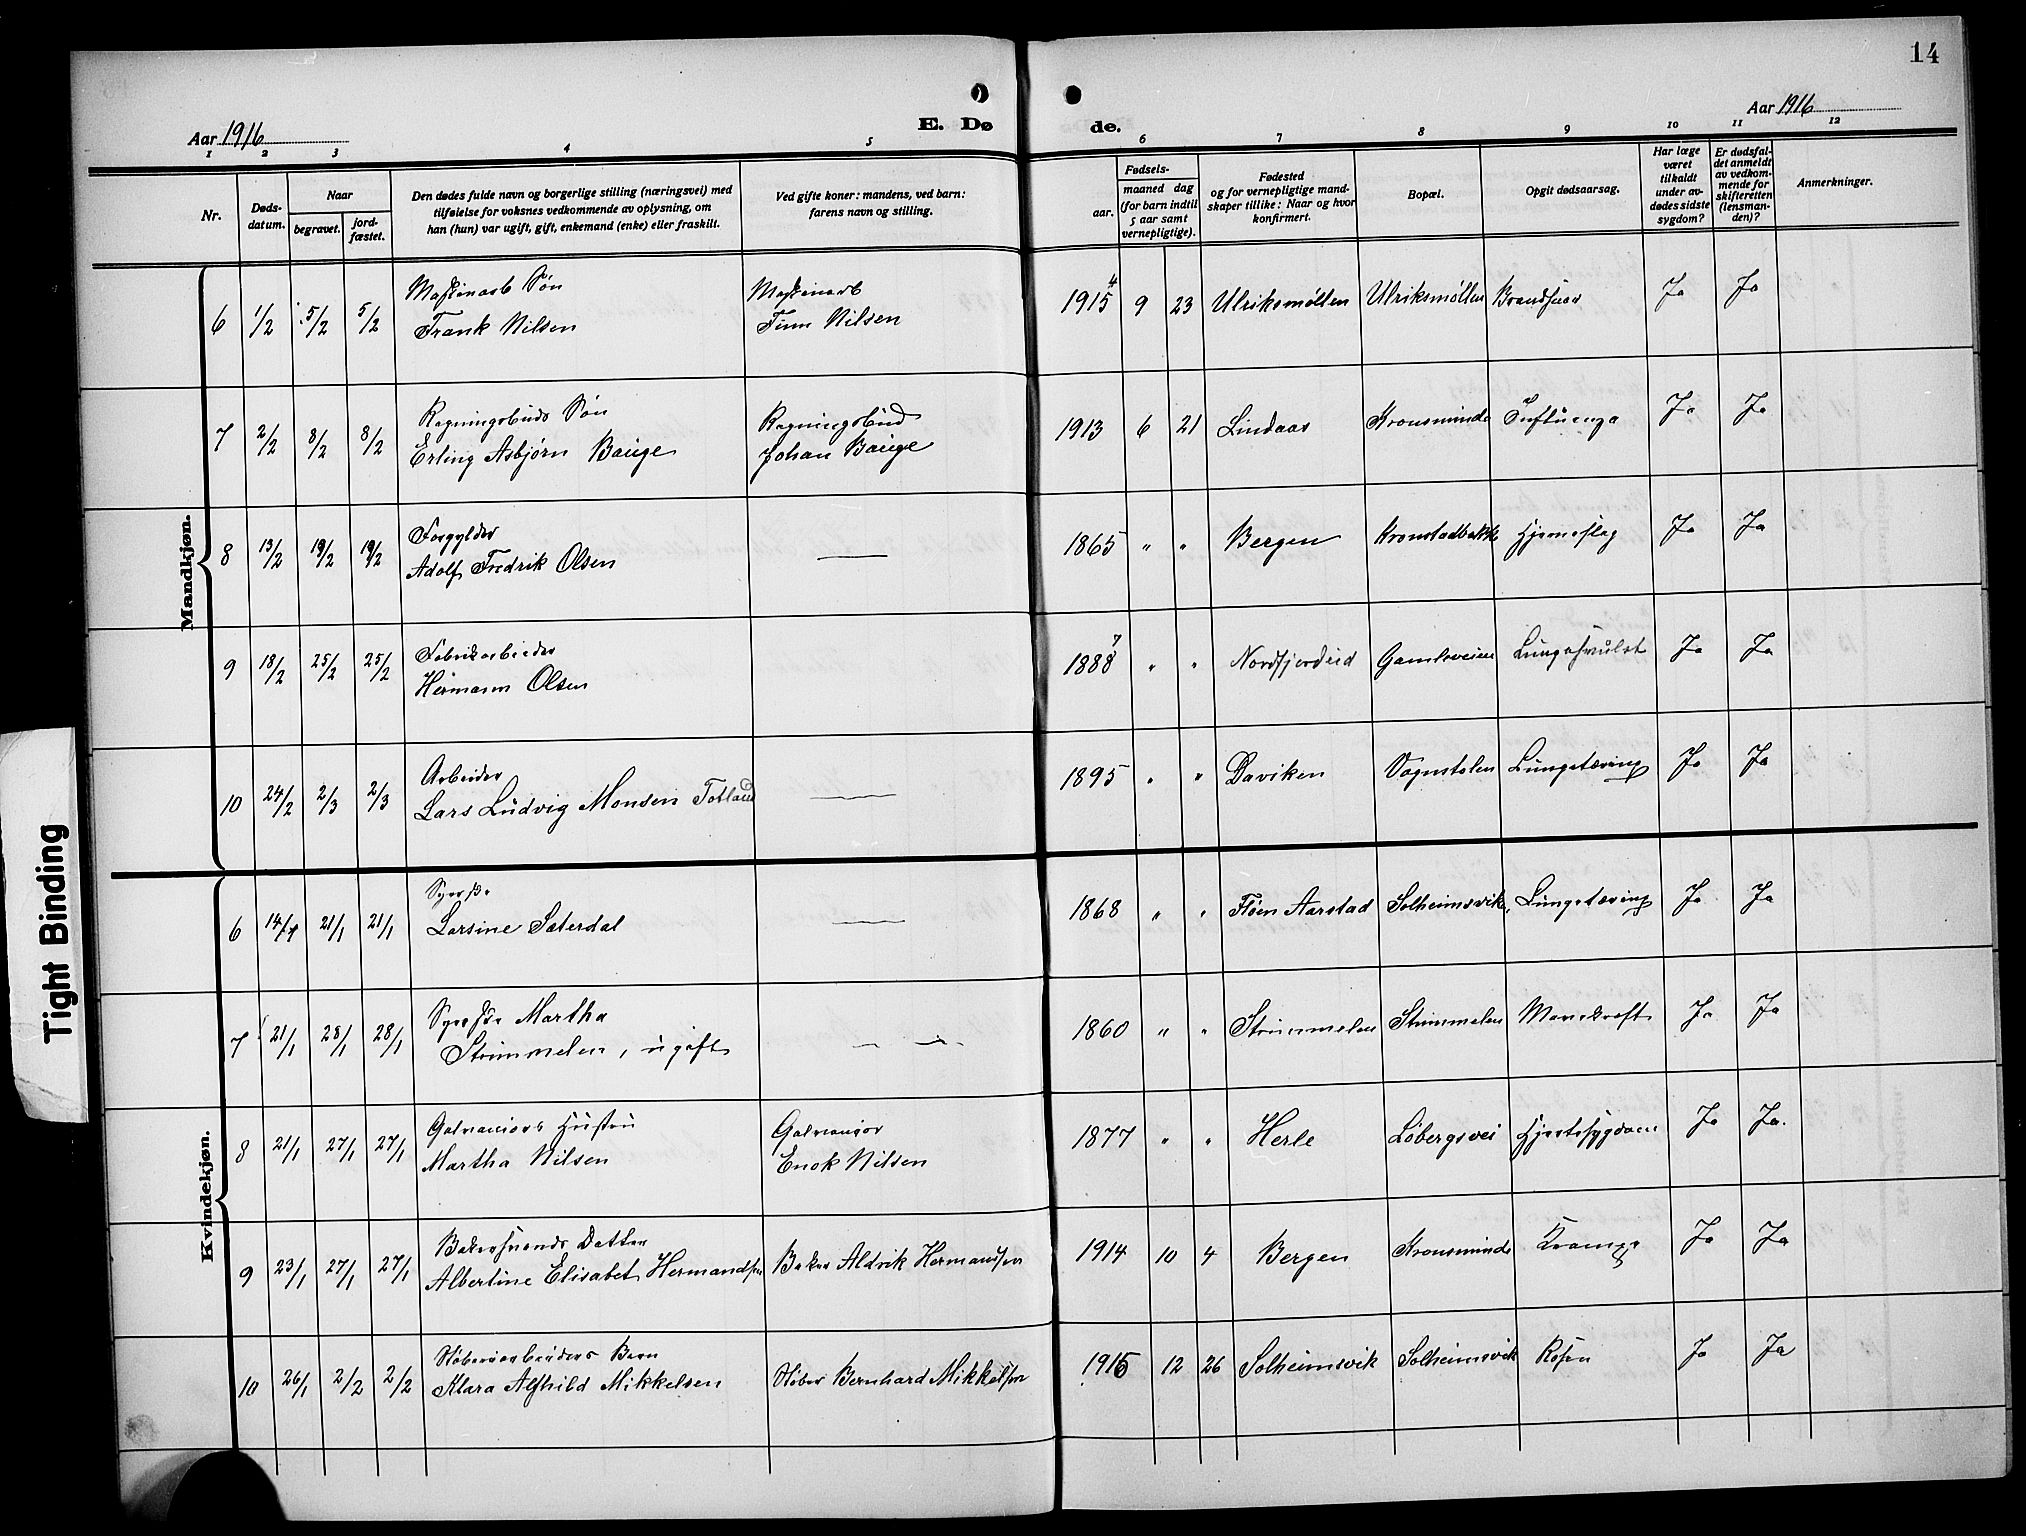 14
Aar 1916
E. Dø
de.
Aar 1916
1 2 3 4 5 6 7 8 9 10 11 12
Nr.
Døds-
datum.
Naar
begravet.
jord-
fæstet.
Den dødes fulde navn og borgerlige stilling (næringsvei) med
tilføielse for voksnes vedkommende av oplysning, om
han (hun) var ugift, gift, enkemand (enke) eller fraskilt.
Ved gifte koner: mandens, ved barn:
farens navn og stilling.
Fødsels-
aar.
maaned dag
(for barn indtil
5 aar samt
vernepligtige).
Fødested
og for vernepligtige mand-
skaper tillike: Naar og hvor
konfirmert.
Bopæl.
Opgit dødsaarsag.
Har læge
været
tilkaldt
under av-
dødes sidste
sygdom?
Er dødsfal-
det anmeldt
av vedkom-
mende for
skifteretten
(lensman-
den)?
Anmerkninger.
Mandkjøn.
Maskinarb Søn Maskinarb
6 1/2 5/2 5/2 Frank Nilsen Finn Nilsen 1915 4 9 23 Ulriksmøllen Ulriksmøllen Ja Ja
Regningsbuds Søn Regningsbud
7 2/2 8/2 8/2 Erling Asbjørn Bauge Johan Bauge 1913 6 21 Lindaas Kronsminde Influenza Ja Ja
Forgylder
8 13/2 19/2 19/2 Adolf Fredrik Olsen — 1865 " " Bergen Kronstadbakk Hjerneslag Ja Ja
Fabrikarbeider
9 18/2 25/2 25/2 Hermann Olsen 1888 7 " " Nordfjordeid Gamleveien Lungesvulst Ja Ja
Arbeider
10 24/2 2/3 2/3 Lars Ludvig Monsen Totland — 1895 " " Daviken Vognstølen Lungetæring Ja Ja
Kvindekjøn.
Syerske
6 14/1 21/1 21/1 Larsine Sæterdal — 1868 " " Fløen Aarstad Solheimsvik Lungetæring Ja Ja
Syerske Martha
7 21/1 28/1 28/1 Strømmelen, ugift — 1860 " " Strimmelen Strimmelen Marekraft Ja Ja
Galvaniørs Hustru Galvaniør
8 21/1 27/1 27/1 Martha Nilsen Enok Nilsen 1877 " " Herle Løbergsvei Hjertesygdom Ja Ja.
Bakersvends Datter
9 23/1 27/1 27/1 Albertine Elisabet Hermandsen Baker Aldrik Hermandsen 1914 10 4 Bergen Kronsminde Krampe Ja Ja
Støberiarbeiders Barn
10 26/1 2/2 2/2 Klara Alfhild Mikkelsen Støber Bernhard Mikkelsen 1915 12 26 Solheimsvik Solheimsvik Rosen Ja Ja
Tight Binding